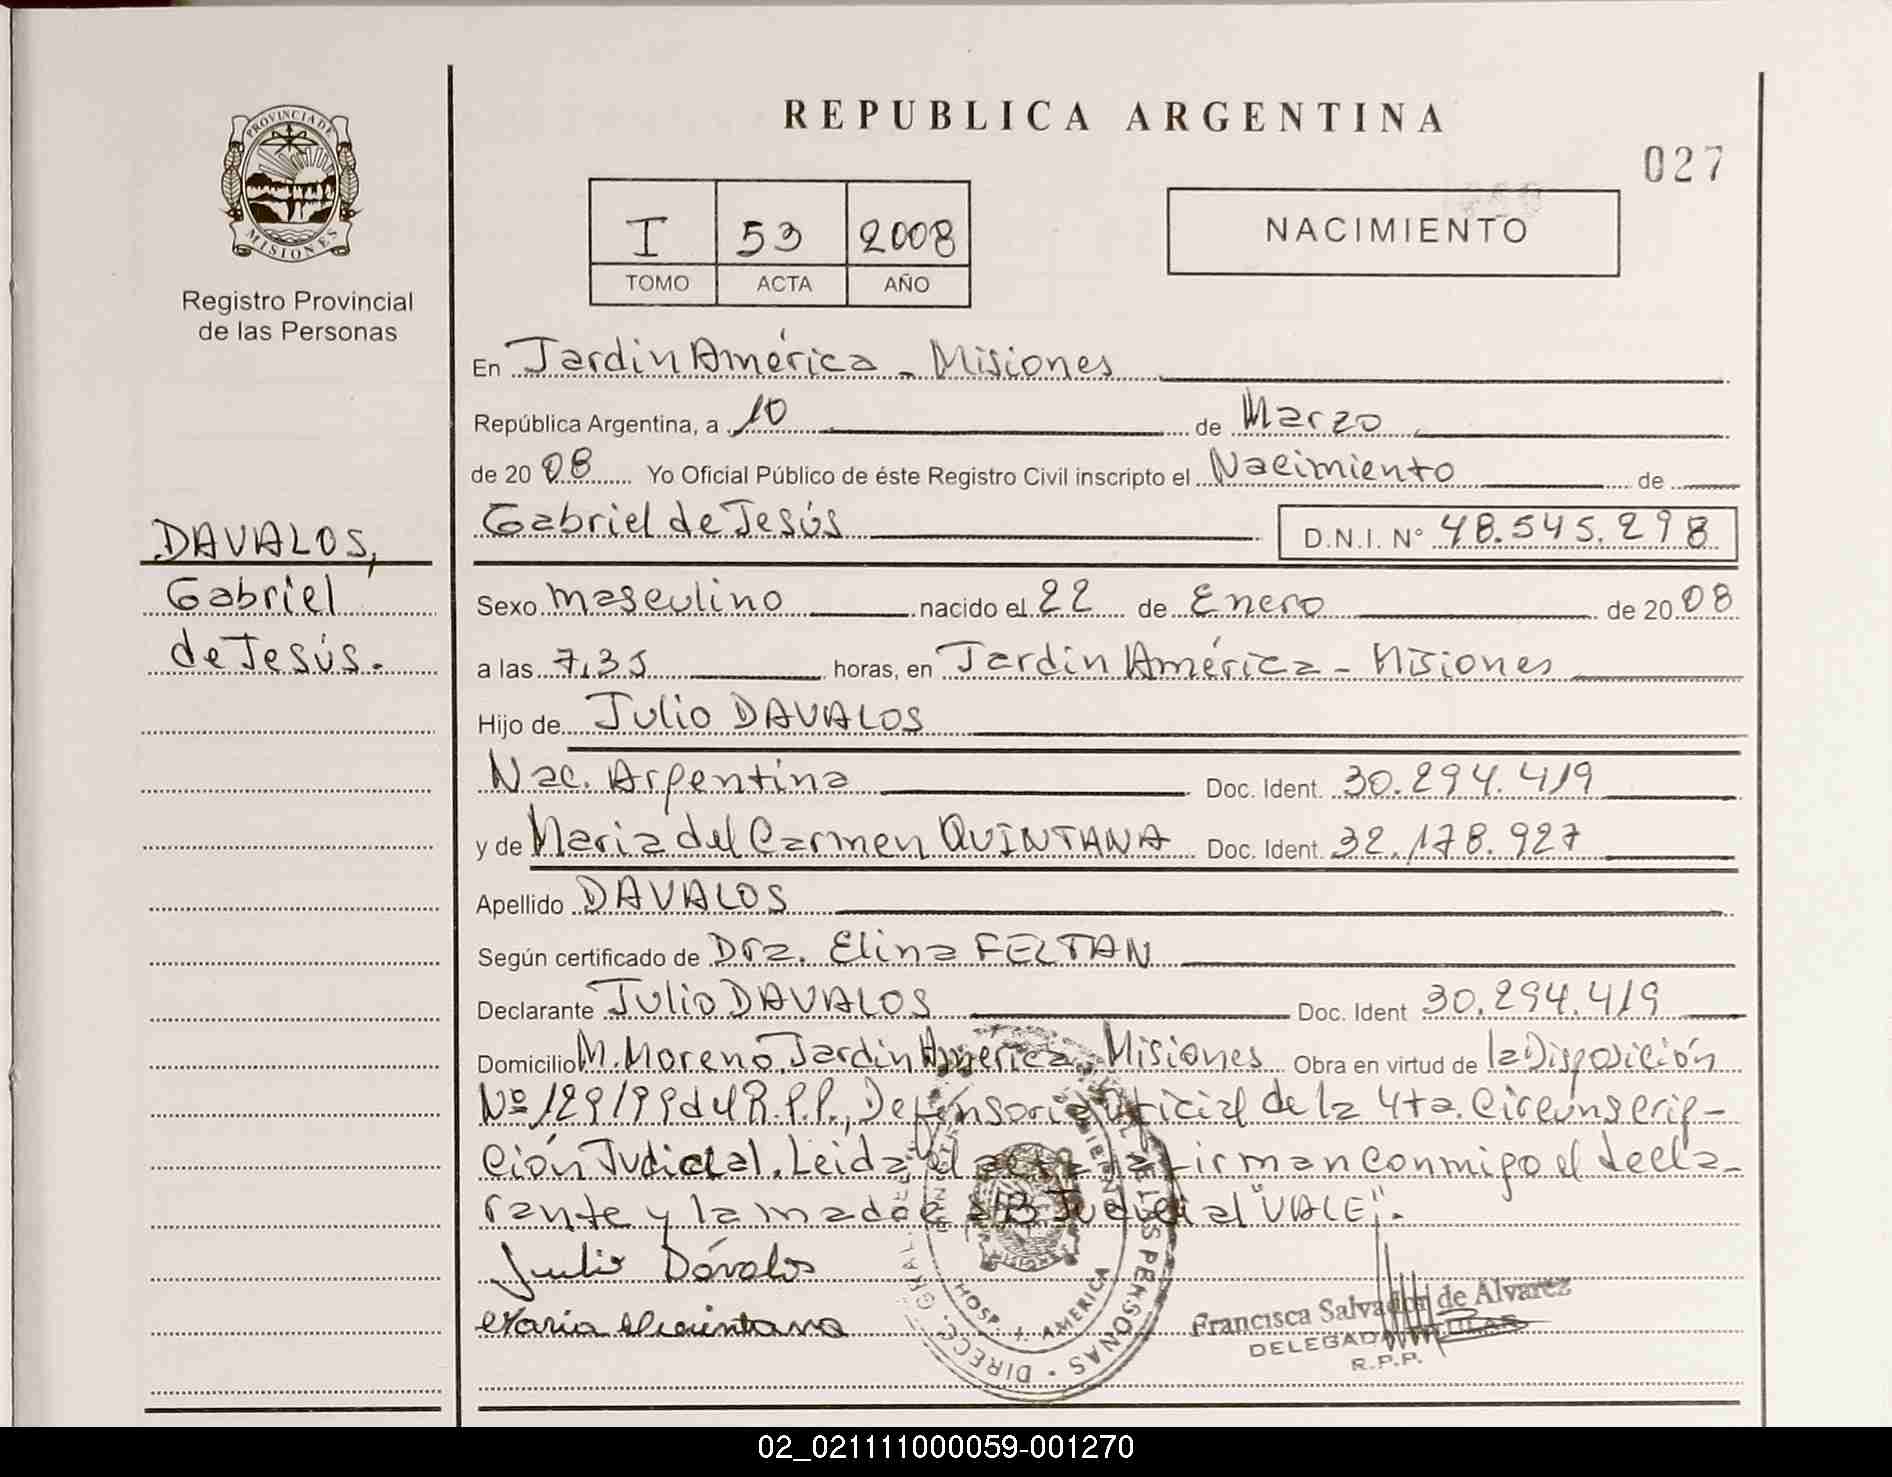 REPUBLICA ARGENTINA
027
PROVINCIA DE
MISIONES
Registro Provincial
de las Personas
I 53 2008
TOMO ACTA AÑO
NACIMIENTO
En Jardin América - Misiones
República Argentina, a 10 de Marzo
de 20 08 Yo Oficial Público de éste Registro Civil inscripto el Nacimiento de
Gabriel de Jesús D.N.I. N° 48.545.298
DAVALOS,
Gabriel
de Jesús.
Sexo masculino nacido el 22 de Enero de 20 08
a las 7,35 horas, en Jardin América - Misiones
Hijo de Julio DAVALOS
Nac. Argentina Doc. Ident. 30.294.419
y de Maria del Carmen QUINTANA Doc. Ident. 32.178.927
Apellido DAVALOS
Según certificado de Dra. Elina FELTAN
Declarante Julio DAVALOS Doc. Ident 30.294.419
Domicilio M. Moreno, Jardin América, Misiones Obra en virtud de la Disposición
Nº 129/99 del R.P.P., Defensoria Oficial de la 4ta. Circunscrip-
ción Judicial. Leida el acta la firman conmigo el decla-
rante y la madre Judicial "VALE".
Julio Dávalos
Maria Quintana
Francisca Salvador de Alvarez
DELEGADA TITULAR
R.P.P.
DIRECC. GRAL. DE LAS PERSONAS
HOSP. J. AMERICA
02_021111000059-001270